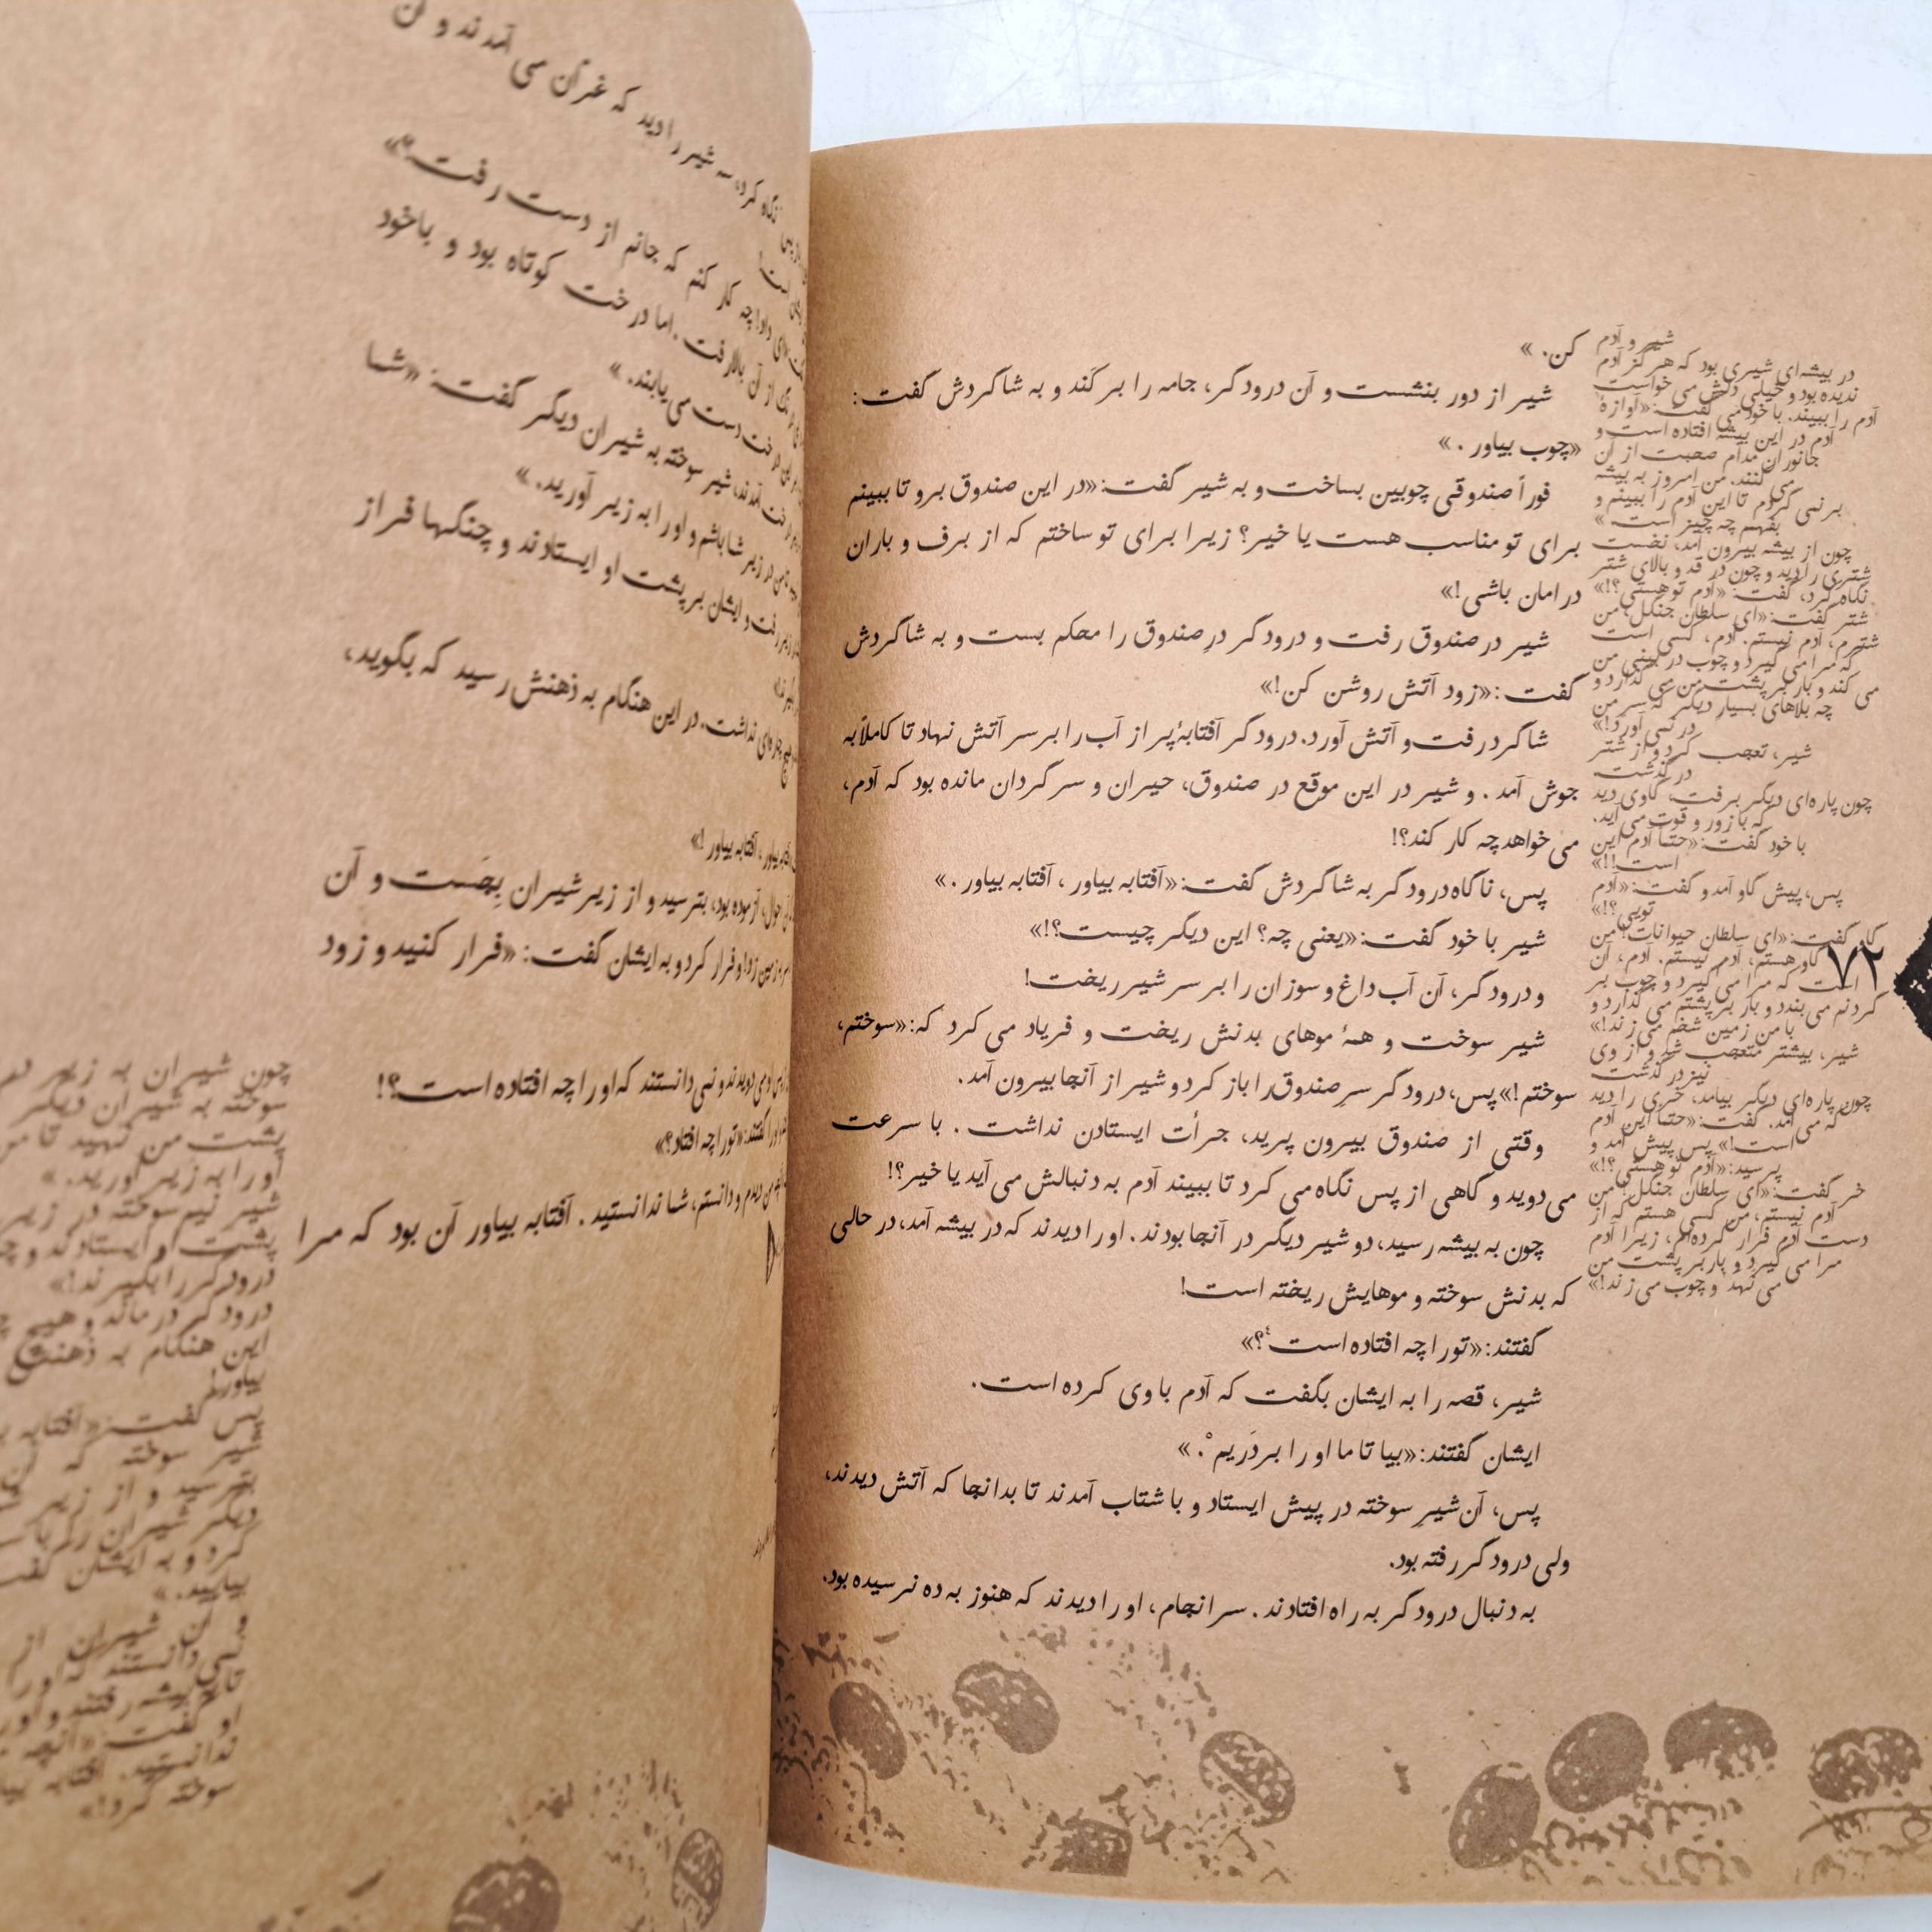 کن. »
شیر از دور بنشست و آن درودگر، جامه را بر کَند و به شاگردش گفت:
«چوب بیاور . »
فوراً صندوقی چوبین بساخت و به شیر گفت: «در این صندوق برو تا ببینم
برای تو مناسب هست یا خیر؟ زیرا برای تو ساختم که از برف و باران
در امان باشی!»
شیر در صندوق رفت و درودگر درِ صندوق را محکم بست و به شاگردش
گفت: «زود آتش روشن کن!»
شاگرد رفت و آتش آورد. درودگر آفتابهٔ پر از آب را بر سر آتش نهاد تا کاملاً به
جوش آمد . و شیر در این موقع در صندوق، حیران و سرگردان مانده بود که آدم،
می خواهد چه کار کند؟!
پس، ناگاه درودگر به شاگردش گفت: «آفتابه بیاور ، آفتابه بیاور . »
شیر با خود گفت: «یعنی چه؟ این دیگر چیست؟!»
و درودگر، آن آب داغ و سوزان را بر سر شیر ریخت!
شیر سوخت و همهٔ موهای بدنش ریخت و فریاد می کرد که: «سوختم،
سوختم!» پس، درودگر سرِ صندوق را باز کرد و شیر از آنجا بیرون آمد.
وقتی از صندوق بیرون پرید، جرأت ایستادن نداشت . با سرعت
می دوید و گاهی از پس نگاه می کرد تا ببیند آدم به دنبالش می آید یا خیر؟!
چون به بیشه رسید، دو شیر دیگر در آنجا بودند. او را دیدند که در بیشه آمد، در حالی
که بدنش سوخته و موهایش ریخته است!
گفتند: «تو را چه افتاده است⁴؟»
شیر، قصه را به ایشان بگفت که آدم با وی کرده است.
ایشان گفتند: «بیا تا ما او را بر دَریم⁵. »
پس، آن شیرِ سوخته در پیش ایستاد و با شتاب آمدند تا بدانجا که آتش دیدند،
ولی درودگر رفته بود.
به دنبال درودگر به راه افتادند . سرانجام، او را دیدند که هنوز به ده نرسیده بود.
شیر و آدم
در بیشه‌ای شیری بود که هرگز آدم
ندیده بود و خیلی دلش می خواست
آدم را ببیند. با خود می گفت: «آوازهٔ
آدم در این بیشه افتاده است و
جانوران مدام صحبت از آن
می کنند. من امروز به بیشه
بر نمی گردم تا این آدم را ببینم و
بفهمم چه چیز است »
چون از بیشه بیرون آمد، نخست
شتری را دید و چون در قد و بالای شتر
نگاه کرد، گفت: «آدم تو هستی؟!»
شتر گفت: «ای سلطان جنگل، من
شترم، آدم نیستم. آدم، کسی است
که مرا می گیرد و چوب در بینی من
می کند و بار بر پشت من می گذارد و
چه بلاهای بسیار دیگر که سر من
در نمی آورد!»
شیر، تعجب کرد و از شتر
در گذشت
چون پاره‌ای دیگر برفت، گاوی دید
که با زور و قوت می آید.
با خود گفت: «حتماً آدم این
است!!»
پس، پیش گاو آمد و گفت: «آدم
تویی؟!»
گاو گفت: «ای سلطان حیوانات! من
گاو هستم، آدم نیستم. آدم، آن
است که مرا می گیرد و چوب بر
گردنم می بندد و بار بر پشتم می گذارد و
با من زمین شخم می زند!»
شیر، بیشتر متعجب شد و از وی
نیز در گذشت
چون پاره‌ای دیگر بیامد، خری را دید
که می آمد. گفت: «حتماً این آدم
است!» پس پیش آمد و
پرسید: «آدم تو هستی؟!»
خر گفت: «ای سلطان جنگل! من
آدم نیستم، من کسی هستم که از
دست آدم فرار کرده‌ام، زیرا آدم
مرا می گیرد و بار بر پشت من
می نهد و چوب می زند!»
۷۲
نگاه کرد، سه شیر را دید که غران می آمدند و آن
چه کار کنم که جانم از دست رفت؟»
از آن بالا رفت . اما درخت کوتاه بود و با خود
درخت دست می یابند. »
آمدند، شیر سوخته به شیران دیگر گفت: «شما
در زیر شما باشم و او را به زیر آورید. »
رفت و ایشان بر پشت او ایستادند و چنگها فراز
نداشت. در این هنگام به ذهنش رسید که بگوید،
بیاور ، آفتابه بیاور !»
آزموده بود، بترسید و از زیر شیران بِجَست و آن
و فرار کرد و به ایشان گفت: «فرار کنید و زود
می دویدند و نمی دانستند که او را چه افتاده است؟!
گفتند: «تو را چه افتاد؟»
من دیدم و دانستم، شما ندانستید . آفتابه بیاور آن بود که مرا
چون شیران به زیر
سوخته به شیران دیگر
پشت من نهید تا من
او را به زیر آورید. »
شیر نیم سوخته در زیر
پشت او ایستادند و
درودگر را بگیرند!»
درودگر در ماند و هیچ
این هنگام به ذهنش
بیاور!
پس گفت: «آفتابه
شیر سوخته که
بترسید و از زیر
دیگر شیران
کرد و به ایشان
بیایید. »
و آن شیران از
نمی دانستند که او را
تا به بیشه رفتند و او را
او گفت: «آنچه
ندانستید. آفتابه
سوخته کرد!»